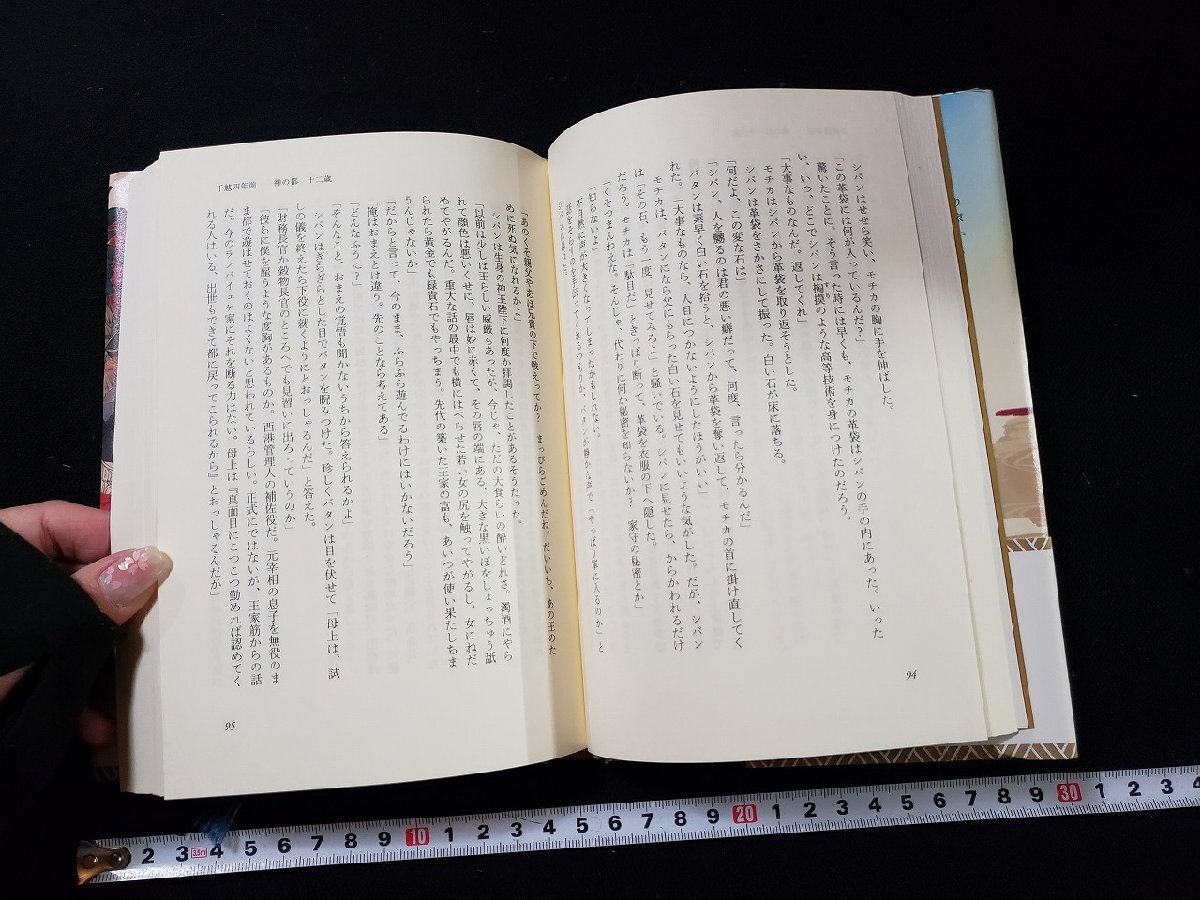 シバンはせせら笑い、モチカの胸に手を伸ばした。
「この革袋には何が入っているんだ？」
驚いたことに、そう言った時には早くも、モチカの革袋はシバンの手の内にあった。いった
い、いつ、どこでシバンは掏摸のような高等技術を身につけたのだろう。
「大事なものなんだ。返してくれ」
モチカはシバンから革袋を取り返そうとした。
シバンは革袋をさかさにして振った。白い石が床に落ちる。
「何だよ、この変な石は」
「シバン、人を嬲るのは君の悪い癖だって、何度、言ったら分かるんだ」
パタンは素早く白い石を拾うと、シバンから革袋を奪い返して、モチカの首に掛け直してく
れた。「大事なものなら、人目につかないようにしたほうがいい」
モチカは、パタンになら父にもらった白い石を見せてもいいような気がした。だが、シバン
は「その石、もう一度、見せてみろ」と騒いでいる。シバンに見せたら、からかわれるだけ
だろう。モチカは「駄目だ」ときっぱり断って、革袋を衣服の下へ隠した。
「くそつまんねえな。そんじゃ、代わりに何か秘密を知らないか？ 家守の秘密とか」
「知らないよ」
不自然に声が大きくなってしまったかもしれない。
94
十二歳
神の都
「あのくそ親父やあほ兄貴の下で戦えってか？ まっぴらごめんだね。だいいち、あの王のた
めに死ぬ気になれるかよ」
シバンは生身の神王陛下に何度か拝謁したことがあるそうだった。
「以前は少しは王らしい威厳もあったが、今じゃ、ただの大食らいの酔いどれさ。濁酒にやら
れて顔色は悪いくせに、唇は妙に赤くて、その唇の端にある、大きな黒いいぼをしょっちゅう舐
めてやがるんだ。重大な話の最中でも横にはべらせた若い女の尻を触ってやがるし、女にねだ
られたら黄金でも緑貴石でもやっちまう。先代の築いた王家の富も、あいつが使い果たしちま
うんじゃないか」
「だからと言って、今のまま、ふらふら遊んでるわけにはいかないだろう」
「俺はおまえとは違う。先のことなら考えてある」
「どんなふうに？」
「そんなこと、おまえの覚悟も聞かないうちから答えられるかよ」
シバンはぎらぎらとした目でパタンを睨みつけた。珍しくパタンは目を伏せて「母上は、試
しの儀を終えたら下役に就くようにとおっしゃるんだ」と答えた。
「財務長官か穀物長官のところへでも見習いに出ろっていうのか」
「彼らに僕を雇うような度胸があるものか。西港管理人の補佐役だ。元宰相の息子を無役のま
ま都で遊ばせておくのはよくないと思われているらしい。正式にではないが、王家筋からの話
だ。今のランパイェケ家にそれを断る力はない。母上は『真面目にこつこつ勤めれば認めてく
れる人はいる、出世もできて都に戻ってこられるから』とおっしゃるんだが」
95
2 3 3.5n 4 5 6 7 8 9 10 1 2 3 4 5 6 7 8 9 20 1 2 3 4 5 6 7 8 9 30 1 2 3 4